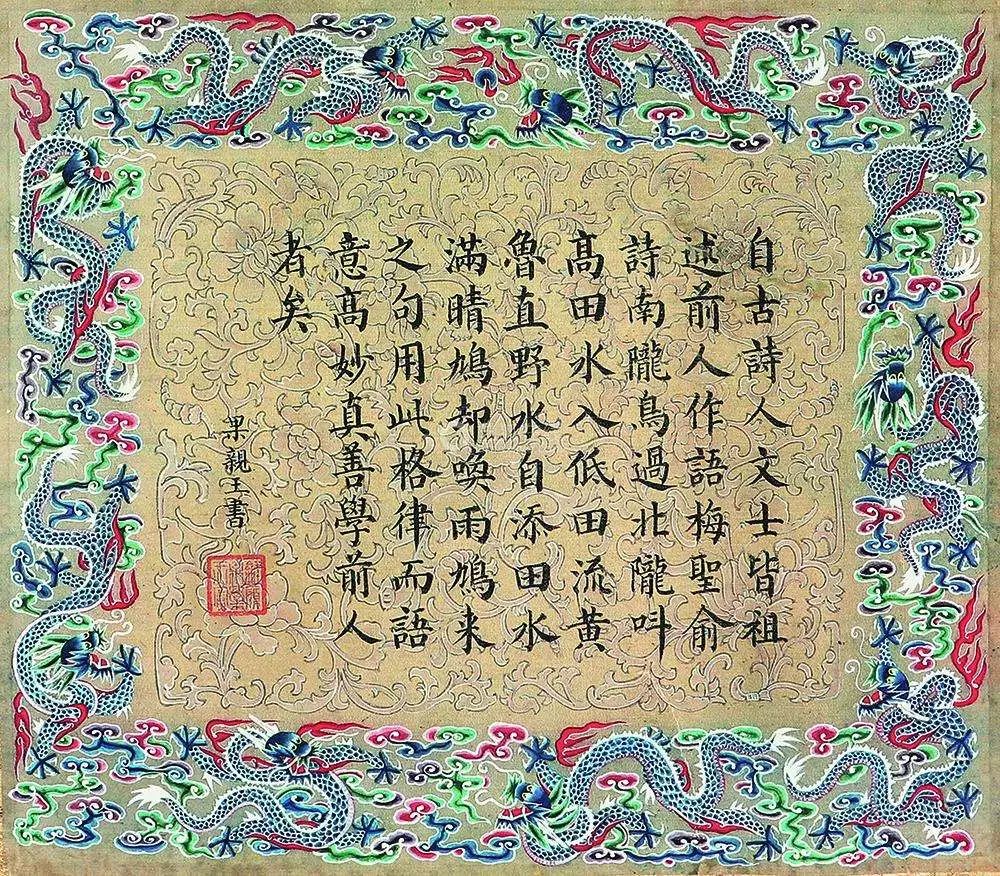 自古詩人文士皆祖
述前人作語梅聖俞
詩南隴鳥過北隴叫
高田水入低田流黄
魯直野水自添田水
滿晴鳩却喚雨鳩来
之句用此格律而語
意高妙真善學前人
者矣
果親王書